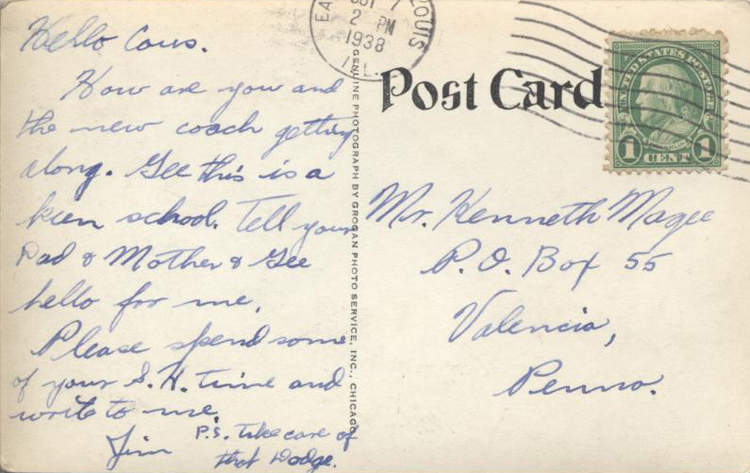 Hello Cous.
How are you and
the new coach getting
along. Gee this is a
keen school. Tell your
Dad & Mother & Gee
hello for me.
Please spend some
of your S.H. time and
write to me.
Jim
P.S. Take care of
that Dodge.
GENUINE PHOTOGRAPH BY GROGAN PHOTO SERVICE, INC., CHICAGO
2 PM
1938
ILL.
LOUIS
Post Card
UNITED STATES POSTAGE
1 CENT 1
Mr. Kenneth Magee
P.O. Box 55
Valencia,
Penna.